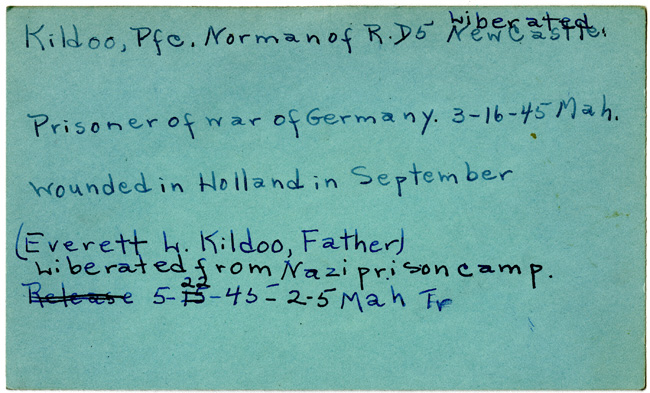 Liberated
Kildoo, Pfc. Norman of R.D5 New Castle.
Prisoner of war of Germany. 3-16-45 Mah.
Wounded in Holland in September
(Everett W. Kildoo, Father)
Liberated from Nazi prison camp.
22
Release 5-15-45-2-5 Mah Tr